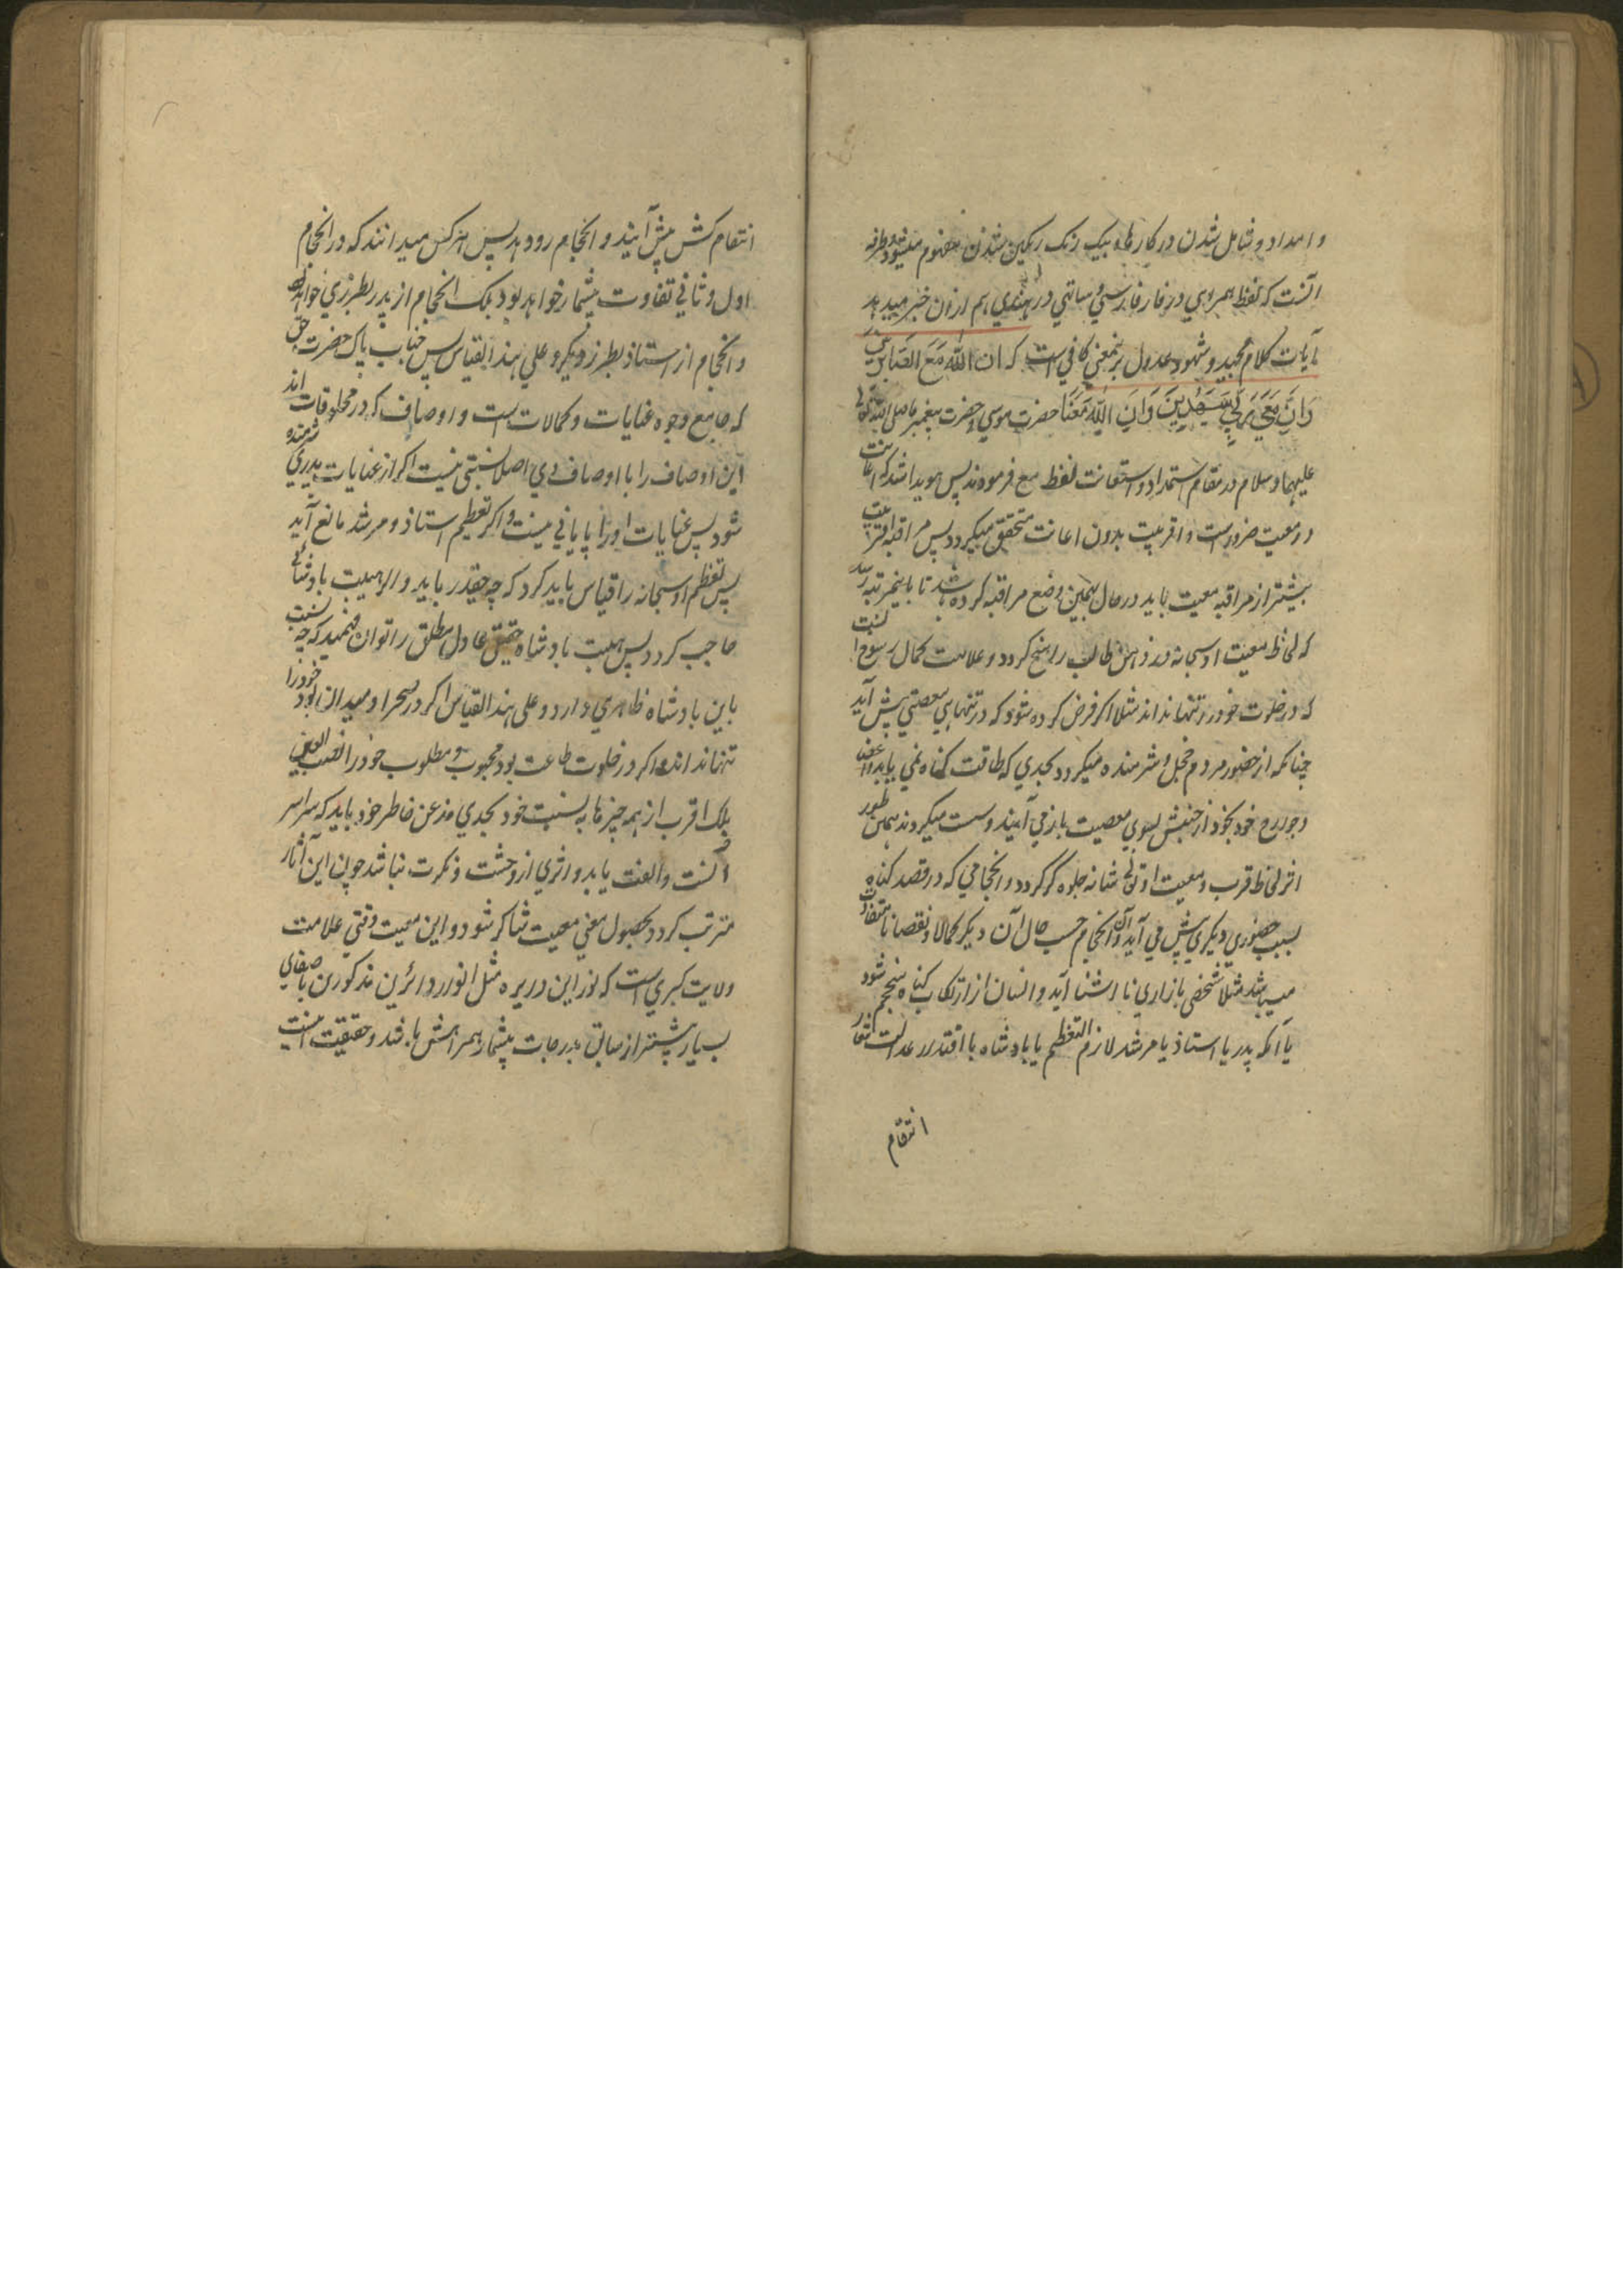 و امداد و شامل شدن در کارها و بیک رنک رنکین شدن مفهوم میشود و طرفه
آنست که لفظ همروهی در فارسی و ساتهی در هندی هم ازان خبر میدهد
آیات کلام مجید و شهود عدول برینمعنی کافی است که ان الله مَعَ الصَّابِرِینَ
وَاِنَّ مَعِیَ رَبِّی سَیَهْدِینِ وَاِنَّ اللّٰهَ مَعَنَا حضرت موسی و حضرت پیغمبر ما صلی الله تعالی
علیهما و سلام در مقام استمداد و استعانت لفظ مع فرمودند پس هویدا شد که اعانت
در معیت ضرور است و اقربیت بدون اعانت متحقق میکردد پس مراقبه اقربیت
بیشتر از مراقبه معیت باید در حال بهمین وضع مراقبه کرده باشد تا باینمرتبه رسد
که لحاظ معیت او سبحانه در ذهن طالب راسخ کردد و علامت کمال رسوخ انست
که در خلوت خود را تنها نداند مثلا اکر فرض کرده شود که در تنهایی معصیتی پیش آید
چنانکه از حضور مردم خجل و شرمنده میکردد بحدی که طاقت کناه نمی یابد و اعضا
و جوارح خود بخود از جنبش بسوی معصیت باز می آیند و سست میکردند بهمین طور
اثر لحاظ قرب و معیت او تعالی شانه جلوه کر کردد و انحجامی که در قصد کناه
بسبب حضوری دیکری پیش می آید و آن انحجام حسب حال آن دیکر کمالا و نقصانا متفاوت
میباشد مثلا شخصی بازاری نا اشنا آید و انسان از ارتکاب کناه منحجم شود
یا آنکه پدر یا استاذ یا مرشد لازم التعظیم یا بادشاه با اقتدار عدالت شعار
انتقام
انتقام کش پیش آیند و انحجام رو دهد پس هرکس میدانند که در انحجام
اول و ثانی تفاوت بیشمار خواهد بود بلکه انحجام از پدر بطرزی خواهد بود
و انحجام از استاذ بطرز دیکر و علی هذا القیاس پس جناب پاک حضرت حق
که جامع وجوه عنایات و کمالات است و اوصاف که در مخلوقات اند
این اوصاف را با اوصاف وی اصلا نسبتی نیست اکر از عنایات پدری شرمنده
شود پس عنایات او را پایانی نیست و اکر تعظیم استاذ و مرشد مانع آید
پس تعظیم او سبحانه را قیاس باید کرد که چه قدر باید و اکر هیبت بادشاهی
حاجب کردد پس هیبت بادشاه حقیقی عادل مطلق را توان فهمید که چه نسبت
باین بادشاه ظاهری دارد و علی هذا القیاس اکر در صحرا و میدان بود خود را
تنها نداند و اکر در خلوت طاعت بود محبوب و مطلوب خود را نصب العین
بلکه اقرب از همه چیزها به نسبت خود بحدی مذعن خاطر خود باید که سراسر
انست و الفت یابد و اثری از وحشت و نکرت نباشد چون این آثار
مترتب کردد بحصول معنی معیت شاکر شود و این معیت وقتی علامت
ولایت کبری است که نور این دریره مثل انوار دائرین مذکورین با صفای
بسیار بیشتر از سابق بدرجات بیشمار همراهش یافتد و حقیقت اینست